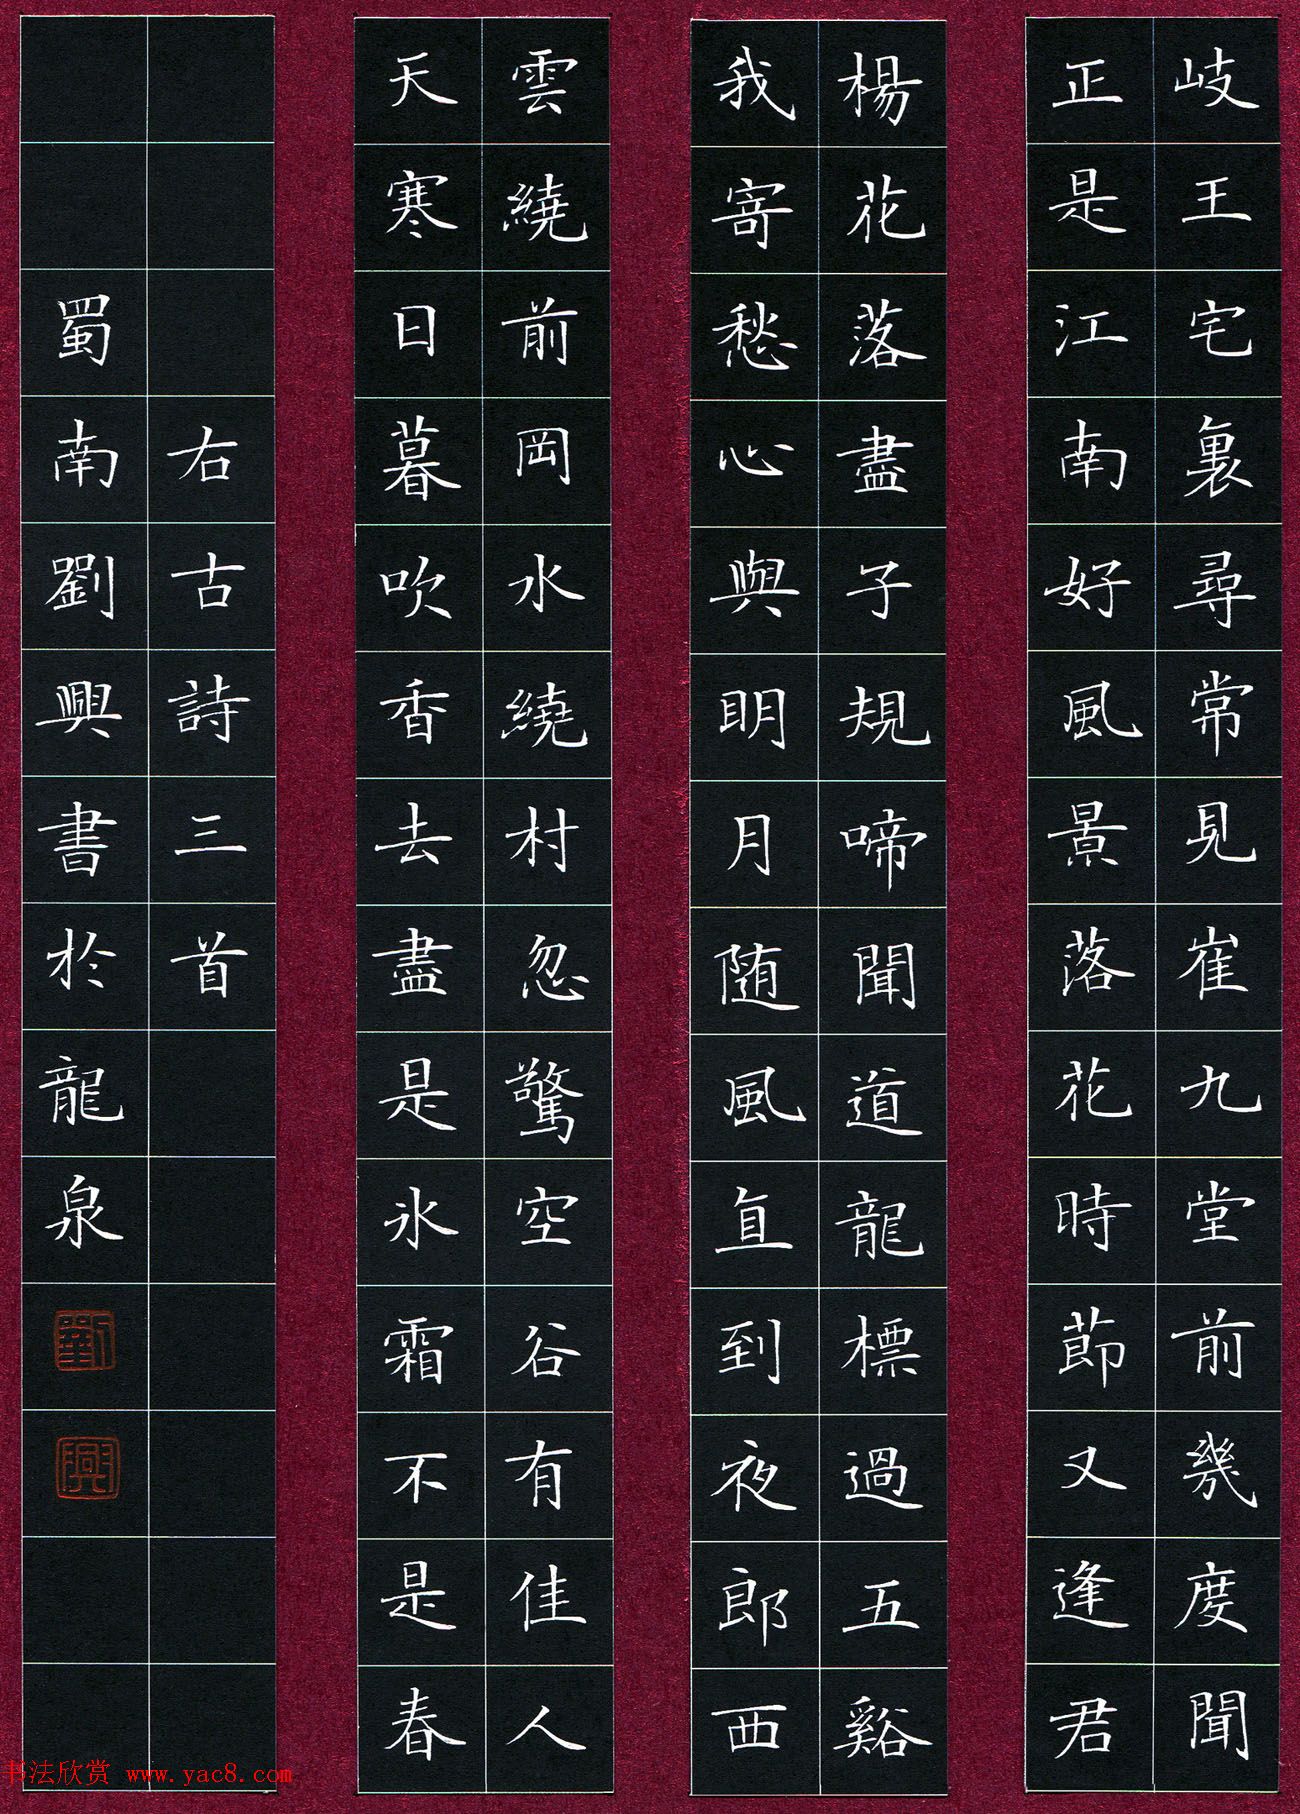 岐王宅裏尋常見崔九堂前幾度聞
正是江南好風景落花時節又逢君
楊花落盡子規啼聞道龍標過五谿
我寄愁心與明月随風直到夜郎西
雲繞前岡水繞村忽驚空谷有佳人
天寒日暮吹香去盡是氷霜不是春
右古詩三首
蜀南劉興書於龍泉
劉
興
书法欣赏 www.yac8.com